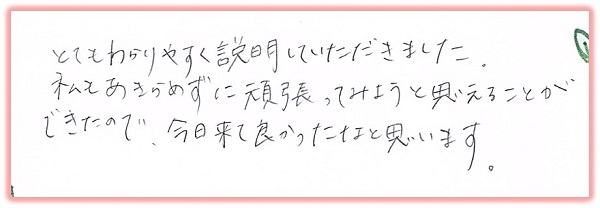 とてもわかりやすく説明していただきました。
私もあきらめずに頑張ってみようと思えることが
できたので、今日来て良かったなと思います。